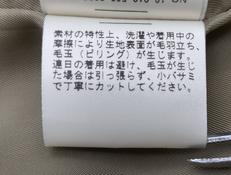 素材の特性上、洗濯や着用中の
摩擦により生地表面が毛羽立ち、
毛玉(ピリング)が生じます。
連日の着用は避け、毛玉が生じ
た場合は引っ張らず、小バサミ
で丁寧にカットしてください。